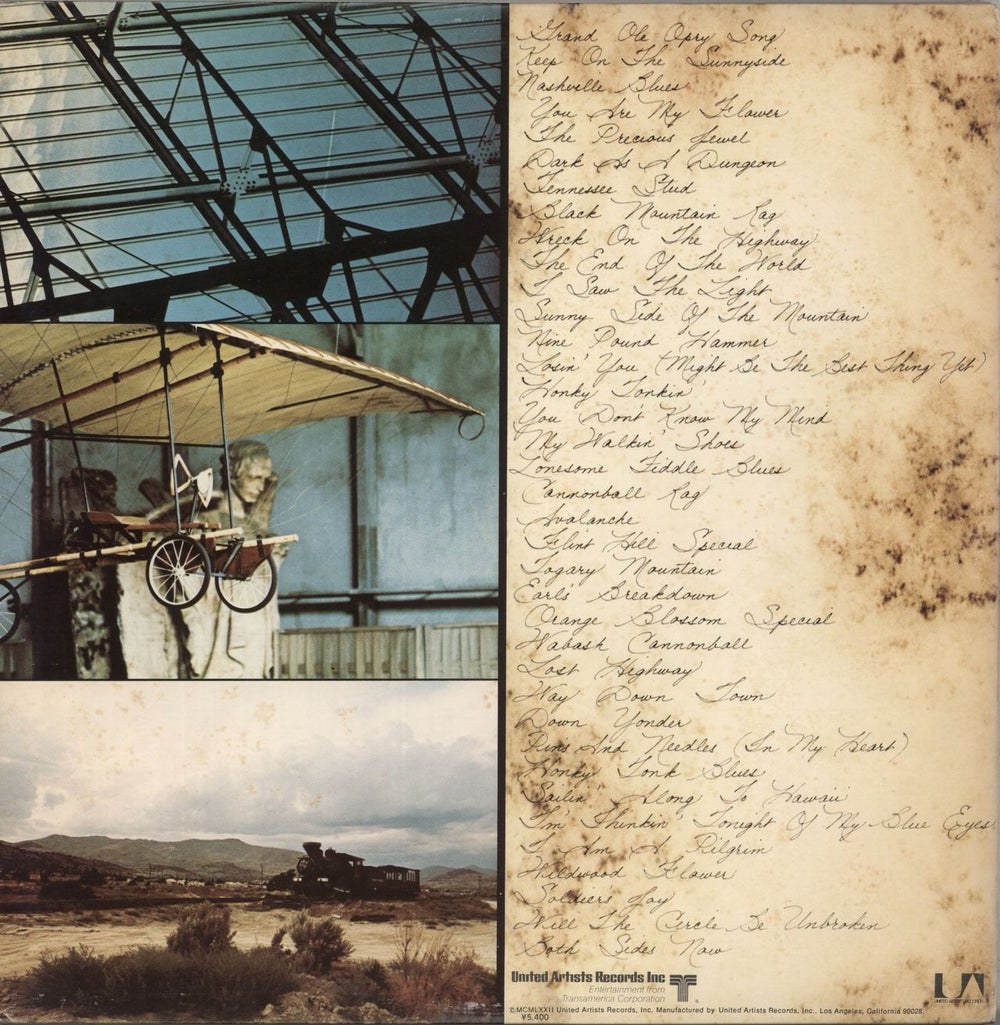 Grand Ole Opry Song
Keep On The Sunnyside
Nashville Blues
You Are My Flower
The Precious Jewel
Dark As A Dungeon
Tennessee Stud
Black Mountain Rag
Wreck On The Highway
The End Of The World
I Saw The Light
Sunny Side Of The Mountain
Nine Pound Hammer
Losin' You (Might Be The Best Thing Yet)
Honky Tonkin'
You Don't Know My Mind
My Walkin' Shoes
Lonesome Fiddle Blues
Cannonball Rag
Avalanche
Flint Hill Special
Togary Mountain
Earl's Breakdown
Orange Blossom Special
Wabash Cannonball
Lost Highway
Way Down Town
Down Yonder
Pins And Needles (In My Heart)
Honky Tonk Blues
Sailin' Along To Hawaii
I'm Thinkin' Tonight Of My Blue Eyes
I Am A Pilgrim
Wildwood Flower
Soldier's Joy
Will The Circle Be Unbroken
Both Sides Now
United Artists Records Inc
Entertainment from
Transamerica Corporation
UA
UNITED ARTISTS RECORDS
©MCMLXXII United Artists Records, Inc. Manufactured by United Artists Records, Inc., Los Angeles, California 90028.
¥5,400